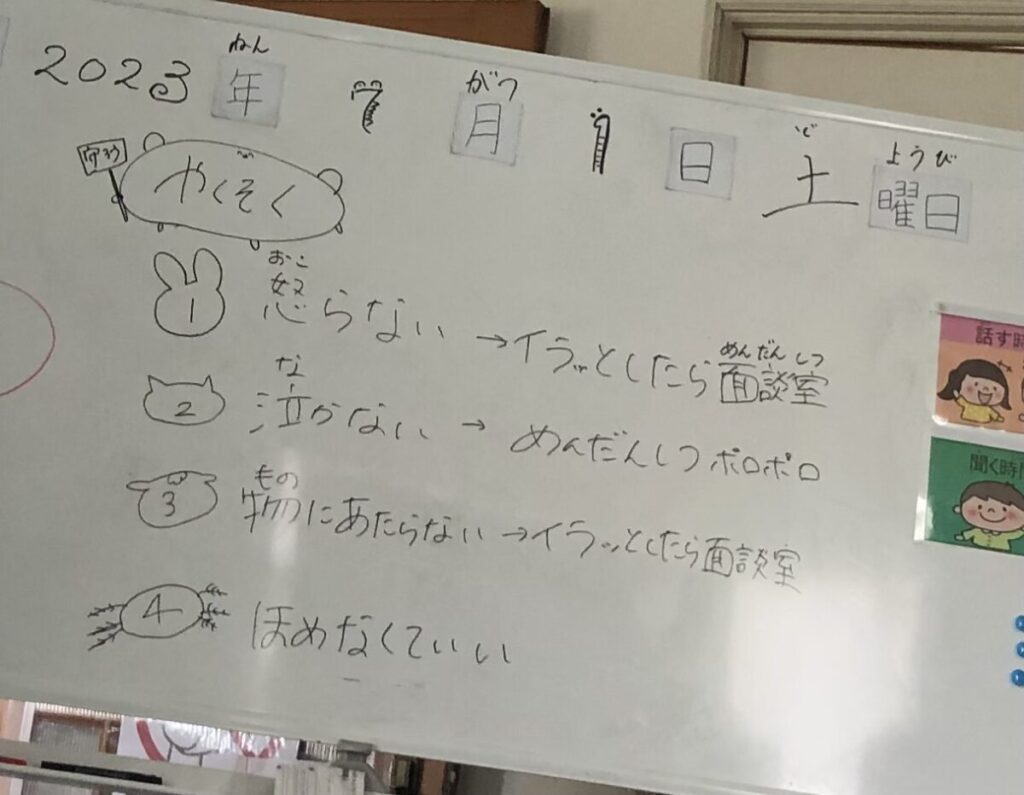 ねん がつ ど ようび
2023年 7月 1日 土曜日
守ろう
やくそく
おこ めんだんしつ
1 怒らない →イラッとしたら面談室
な
2 泣かない → めんだんしつ ポロポロ
もの
3 物にあたらない →イラッとしたら面談室
4 ほめなくていい
話す時
聞く時